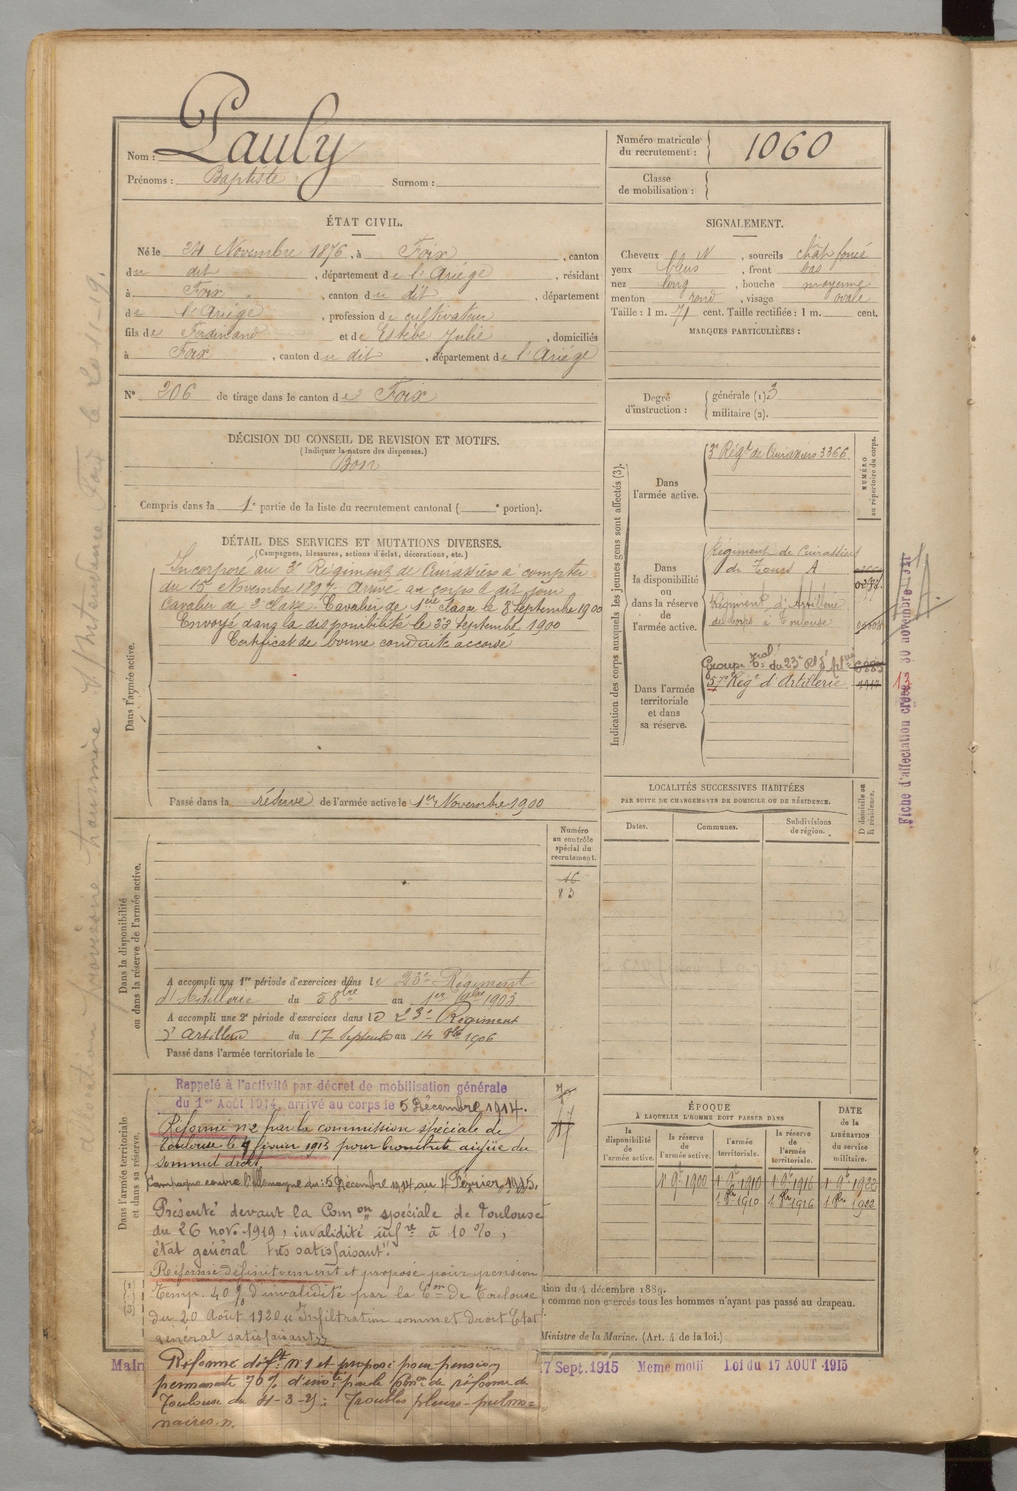 Nom : Pauly
Prénoms : Baptiste Surnom :
Numéro matricule du recrutement : 1060
Classe de mobilisation :
ÉTAT CIVIL.
Né le 24 Novembre 1876, à Foix, canton
du dit, département de l'Ariège, résidant
à Foix, canton du dit, département
de l'Ariège, profession de cultivateur
fils de Ferdinand et de Estèbe Julie, domiciliés
à Foix, canton du dit, département de l'Ariège
SIGNALEMENT.
Cheveux N, sourcils chât foncé
yeux bleus, front bas
nez long, bouche moyenne
menton rond, visage ovale
Taille : 1 m. 71 cent. Taille rectifiée : 1 m. cent.
MARQUES PARTICULIÈRES :
N° 206 de tirage dans le canton de Foix
Degré d'instruction : générale (1) 3
militaire (2).
DÉCISION DU CONSEIL DE REVISION ET MOTIFS.
(Indiquer la nature des dispenses.)
Bon
Compris dans la 1e partie de la liste du recrutement cantonal ( e portion).
DÉTAIL DES SERVICES ET MUTATIONS DIVERSES.
(Campagnes, blessures, actions d'éclat, décorations, etc.)
Dans l'armée active.
Incorporé au 3e Régiment de Cuirassiers à compter
du 15 Novembre 1897. Arrivé au corps le dit jour
Cavalier de 2e classe. Cavalier de 1ère classe le 8 Septembre 1900
Envoyé dans la disponibilité le 22 Septembre 1900
Certificat de bonne conduite accordé
Passé dans la réserve de l'armée active le 1er Novembre 1900
Indication des corps auxquels les jeunes gens sont affectés (3).
NUMÉRO au répertoire du corps.
Dans l'armée active.
3e Régt de Cuirassiers 3366
Dans la disponibilité ou dans la réserve de l'armée active.
Régiment de Cuirassiers
de Tours A
Régiment d'Artillerie
de corps à Toulouse
Dans l'armée territoriale et dans sa réserve.
Groupe Tal du 23e Rt d'Art
57e Régt d'Artillerie
LOCALITÉS SUCCESSIVES HABITÉES
PAR SUITE DE CHANGEMENTS DE DOMICILE OU DE RÉSIDENCE.
Dates. Communes. Subdivisions de région. D domicile ou R résidence.
Dans la disponibilité ou dans la réserve de l'armée active.
Numéro au contrôle spécial du recrutement.
A accompli une 1re période d'exercices dans le 23e Régiment
d'Artillerie du 5 8bre au 1er 9bre 1903
A accompli une 2e période d'exercices dans le 23e Régiment
d'Artillerie du 17 Septembre au 14 8bre 1906
Passé dans l'armée territoriale le
Dans l'armée territoriale et dans sa réserve.
Rappelé à l'activité par décret de mobilisation générale
du 1er Août 1914, arrivé au corps le 5 Décembre 1914.
Réformé n°2 par la commission spéciale de
Toulouse le 4 février 1915 pour bronchite aigüe du
sommet droit.
Campagne contre l'Allemagne du : 5 Décembre 1914 au 4 Février 1915.
Présenté devant la Comon spéciale de Toulouse
du 26 nov. 1919, invalidité infre à 10 %,
état général très satisfaisant".
Réformé définitivement et proposé pour pension
Temp. 40 % d'invalidité par la Con de Toulouse
du 20 Août 1920 "Infiltration sommet droit Etat
général satisfaisant"
Réformé déft n° 1 et proposé pour pension
permanente 70 % d'invté par la Comon de réforme de
Toulouse du 4-3-25 : Troubles pleuro-pulmo=
naires.
ÉPOQUE
À LAQUELLE L'HOMME DOIT PASSER DANS
la disponibilité de l'armée active. la réserve de l'armée active. l'armée territoriale. la réserve de l'armée territoriale.
DATE de la LIBÉRATION du service militaire.
1 9bre 1900 1 9bre 1910 1 9bre 1916 1 9bre 1922
1 8bre 1910 1 8bre 1916 1 8bre 1922
tion du 4 décembre 1889.
comme non exercés tous les hommes n'ayant pas passé au drapeau.
Ministre de la Marine. (Art. 4 de la loi.)
Main
7 Sept. 1915 Meme motif Loi du 17 AOUT 1915
Fiche d'affectation créée 30 novembre